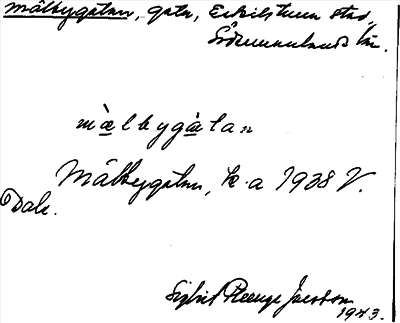 Mälbygatan, gata, Eskilstuna stad,
Södermanlands län.
mä̀lbygàtan
Mälbygatan, k-a 1938 V.
Dale.
Sigbrit Plænge Jacobson
1943.